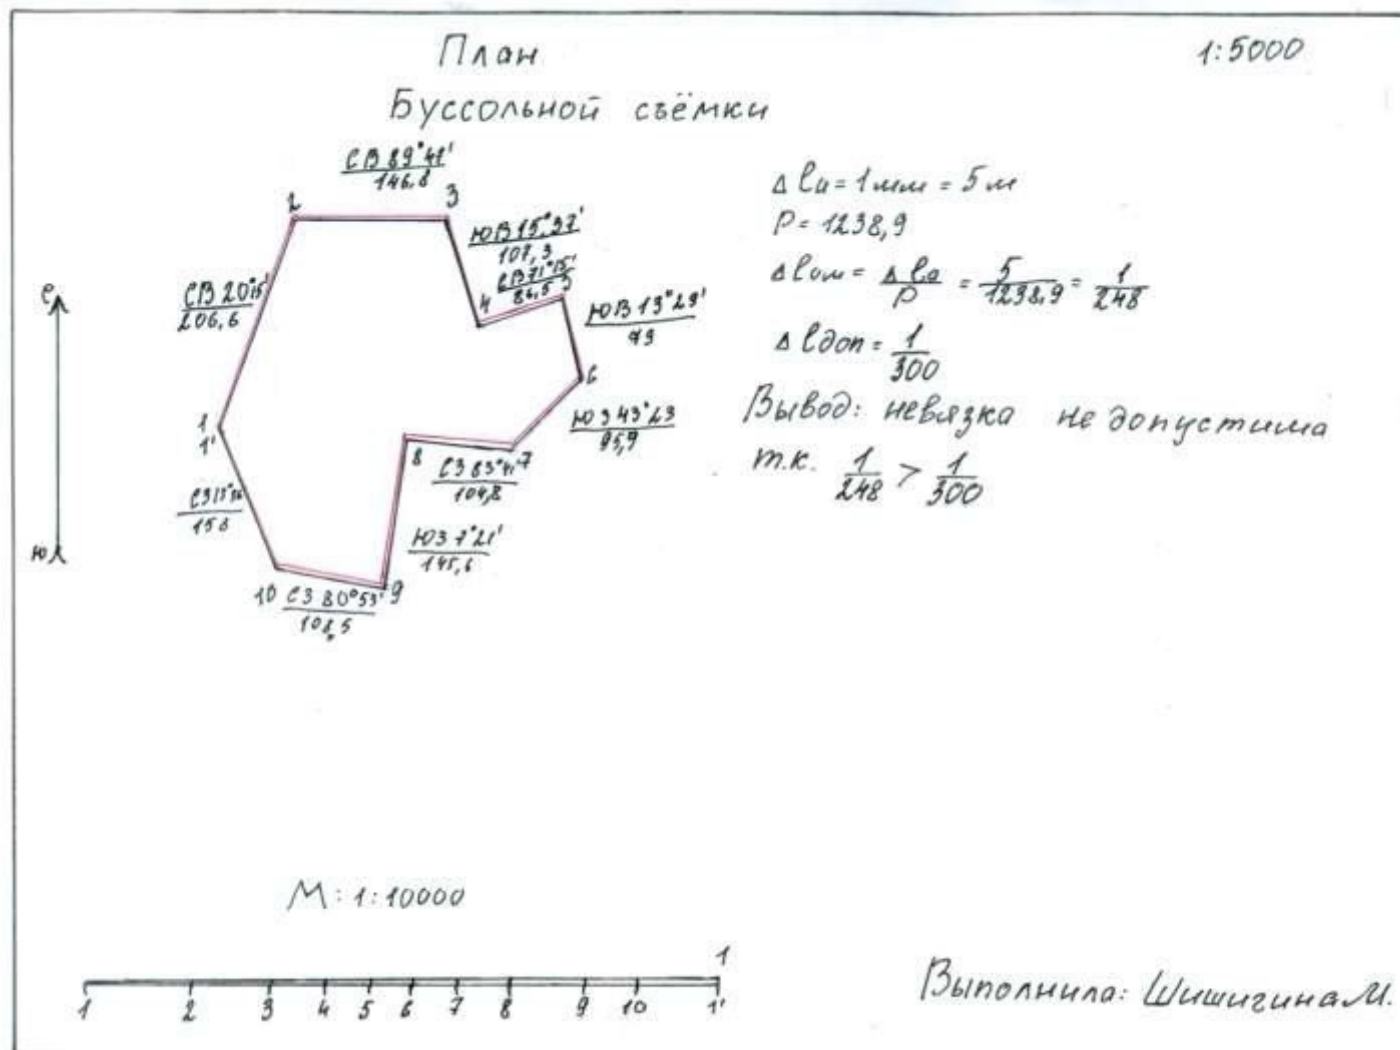 План
1:5000
Буссольной съёмки
СВ 89°41'
146,8
2
3
ЮВ 15°37'
107,3
СВ 71°15'
86,5
4
5
ЮВ 13°29'
79
6
СВ 20°15'
206,6
С
Ю
1
1'
ЮЗ 43°23
95,9
8
СЗ 83°41'
7
104,8
158
ЮЗ 7°21'
145,6
10
СЗ 80°53'
9
108,5
Δlа = 1мм = 5м
P = 1238,9
Δlот = Δlа/P = 5/1238,9 = 1/248
Δlдоп = 1/300
Вывод: невязка не допустима
т.к. 1/248 > 1/300
М: 1:10000
1
1 2 3 4 5 6 7 8 9 10 1'
Выполнила: Шишигина М.